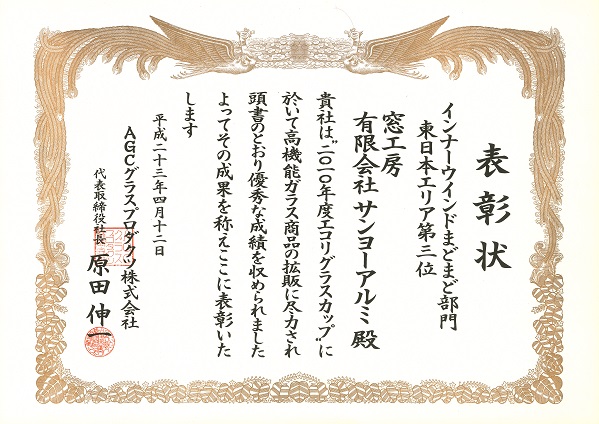 表彰状
インナーウインドまどまど部門
東日本エリア第三位
窓工房
有限会社 サンヨーアルミ 殿
貴社は“二〇一〇年度エコリグラスカップ”に
於いて高機能ガラス商品の拡販に尽力され
頭書のとおり優秀な成績を収められました
よってその成果を称えここに表彰いた
します
平成二十三年四月十二日
AGCグラスプロダクツ株式会社
代表取締役社長 原田 伸一